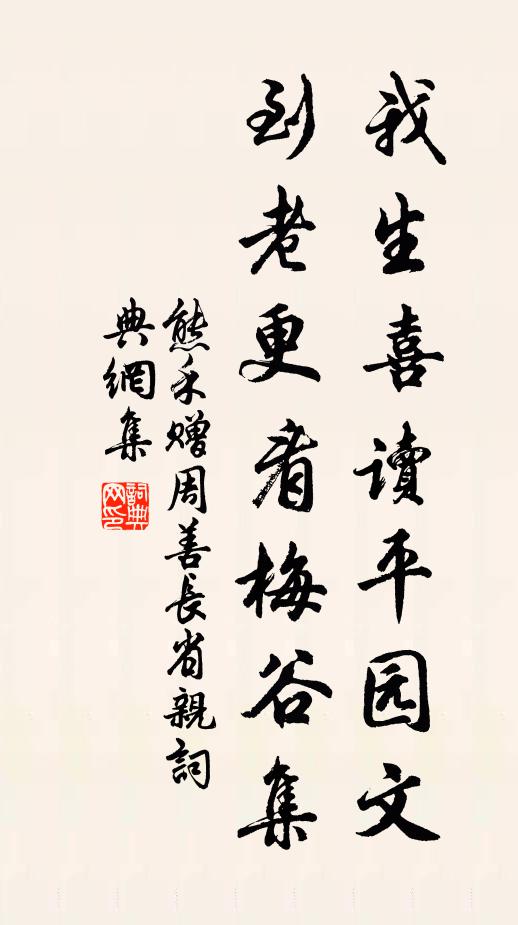 我生喜讀平园文
到老更看梅谷集
熊禾贈周善長省親詞
典網集
詞典網印